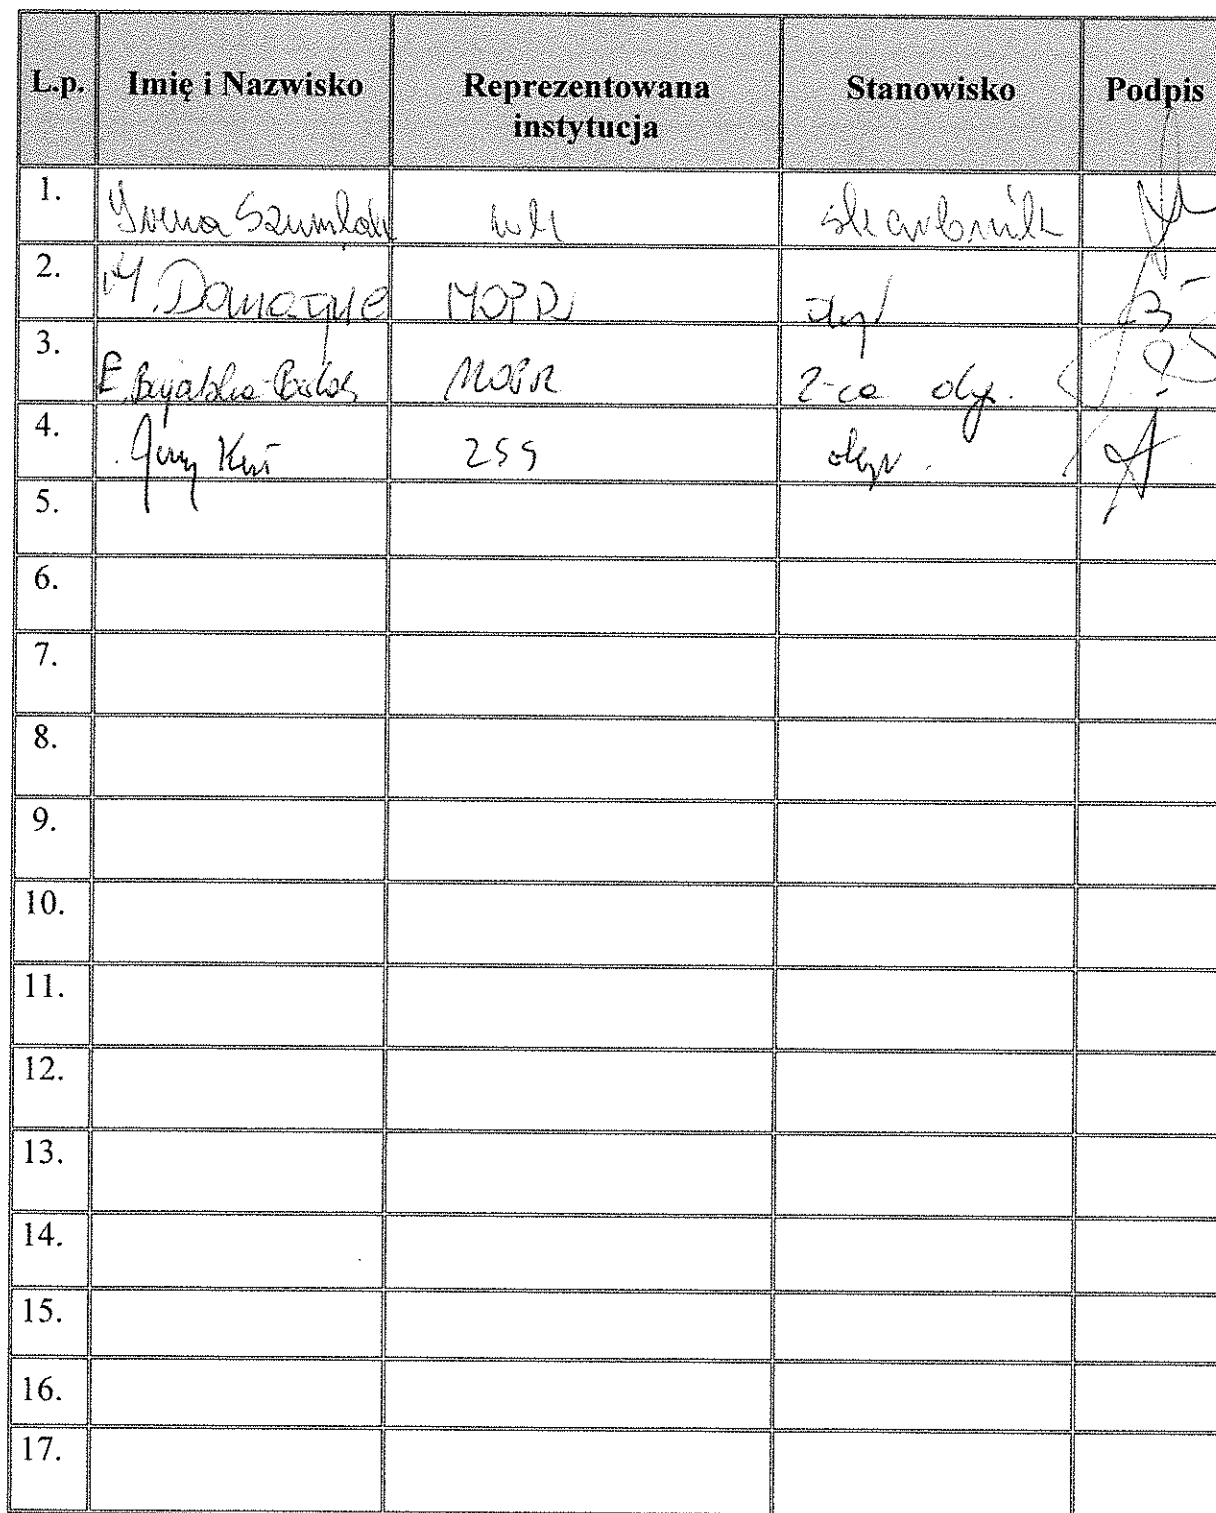 L.p. Imię i Nazwisko Reprezentowana instytucja Stanowisko Podpis
1. Szumlak skarbnik
2. M. MOPR dyr
3. E. MOPR Z-ca dyr.
4. Jerzy ZSS dyr.
5.
6.
7.
8.
9.
10.
11.
12.
13.
14.
15.
16.
17.